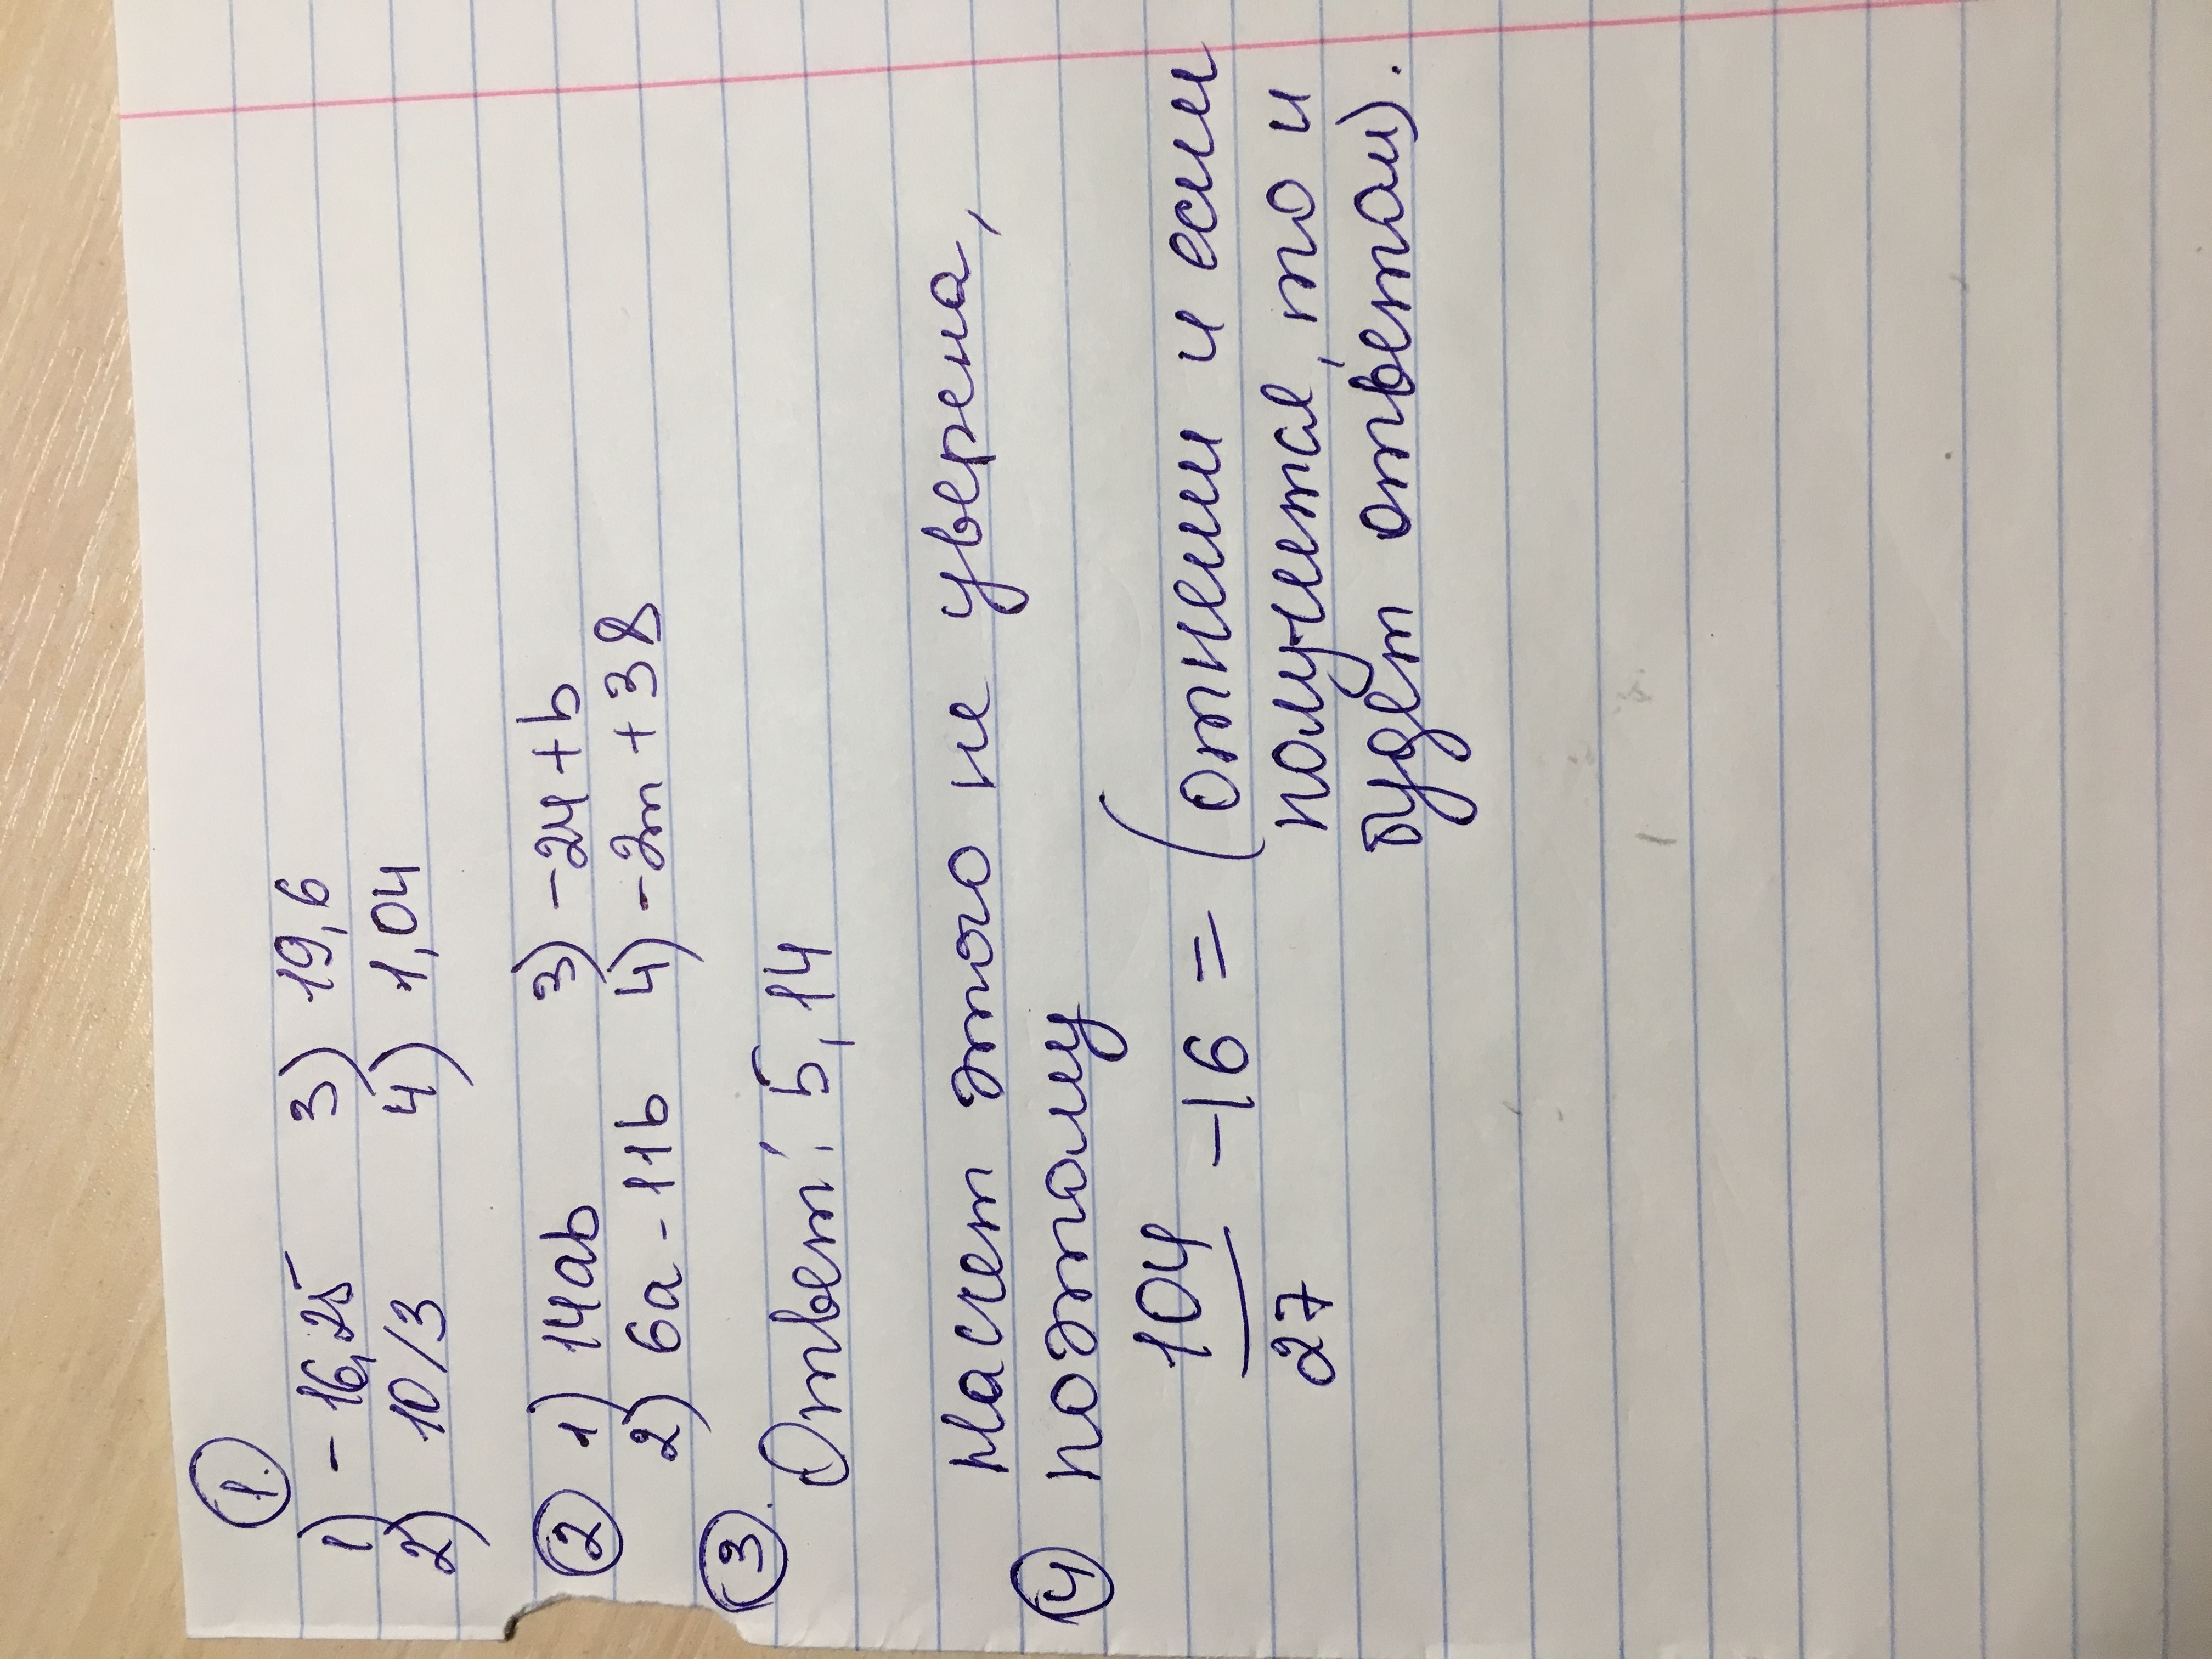 1.
1) -16,25 3) 19,6
2) 10/3 4) 1,04
2 1) 14ab 3) -24+b
2) 6a-11b 4) -2m+38
3.
Ответ: 5,14
Насчет этого не уверена,
4 поэтому
104/27 -16 = (отнеми и если
получется, то и
будет ответом).